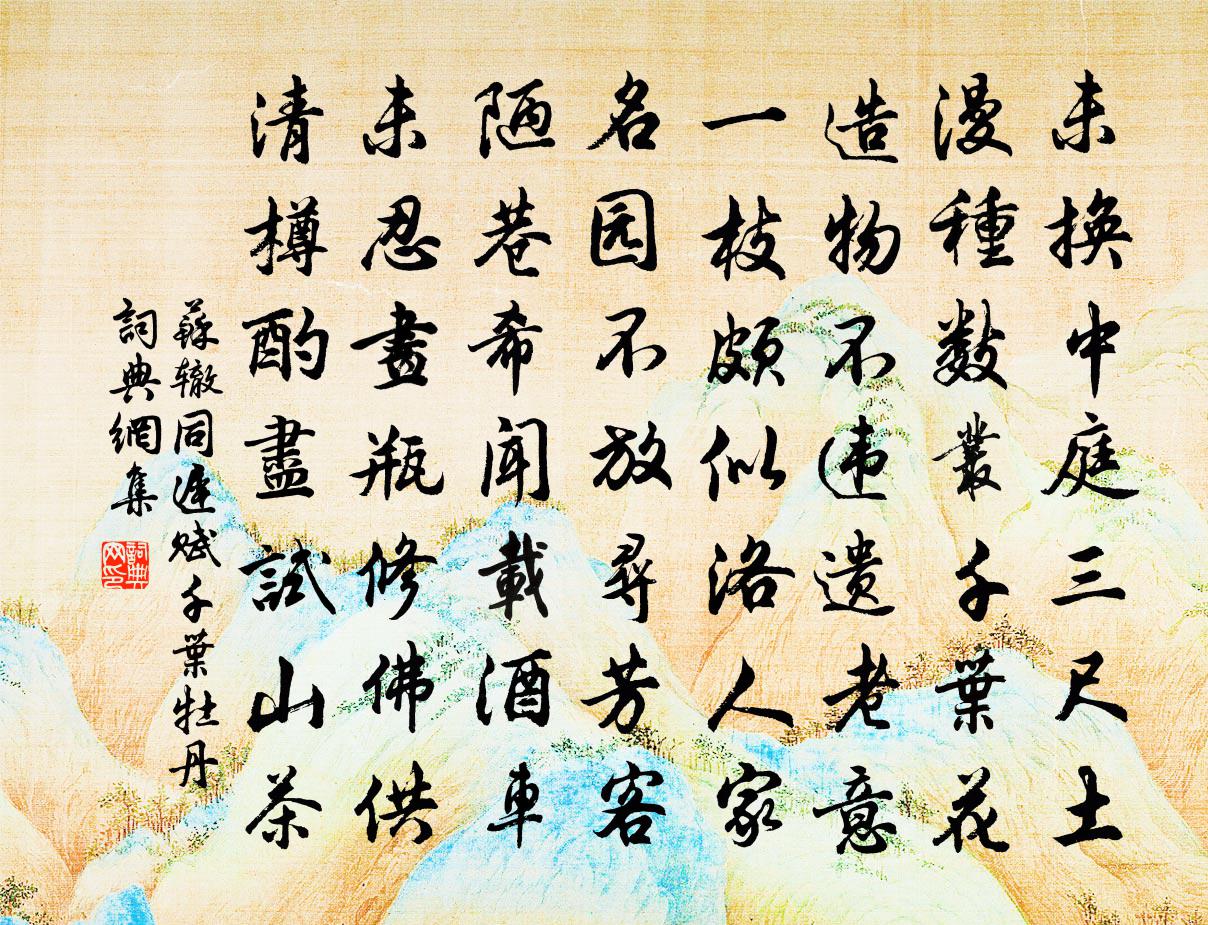 未换中庭三尺土
漫種数叢千葉花
造物不违遗老意
一枝頗似洛人家
名园不放尋芳客
陋巷希闻載酒車
未忍畫瓶修佛供
清樽酌盡試山茶
蘇辙同遲赋千葉牡丹
詞典網集
詞典网印